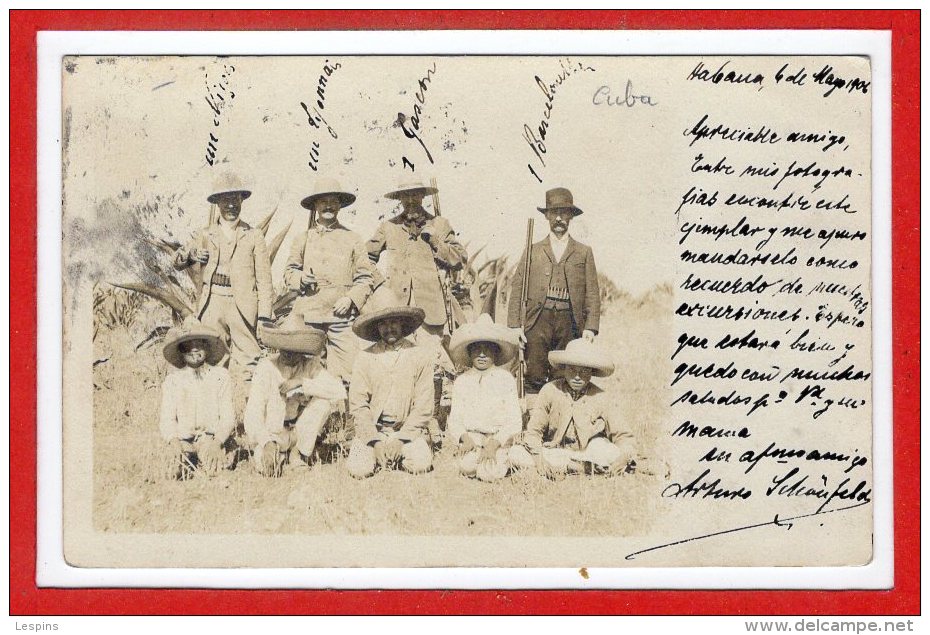 un Niçois
un Lyonnais
1 Gascon
1 Barcelonais
Cuba
Habana, 6 de Mayo 1906
Apreciable amigo,
Entre mis fotogra-
fias encontré este
ejemplar y me apuro
mandarselo como
recuerdo de nuestras
excursiones. Espero
que estará bien y
quedo con muchos
saludos pa Vd y su
mama
su afmo amigo
Arturo Schönfeld
Lespins
www.delcampe.net